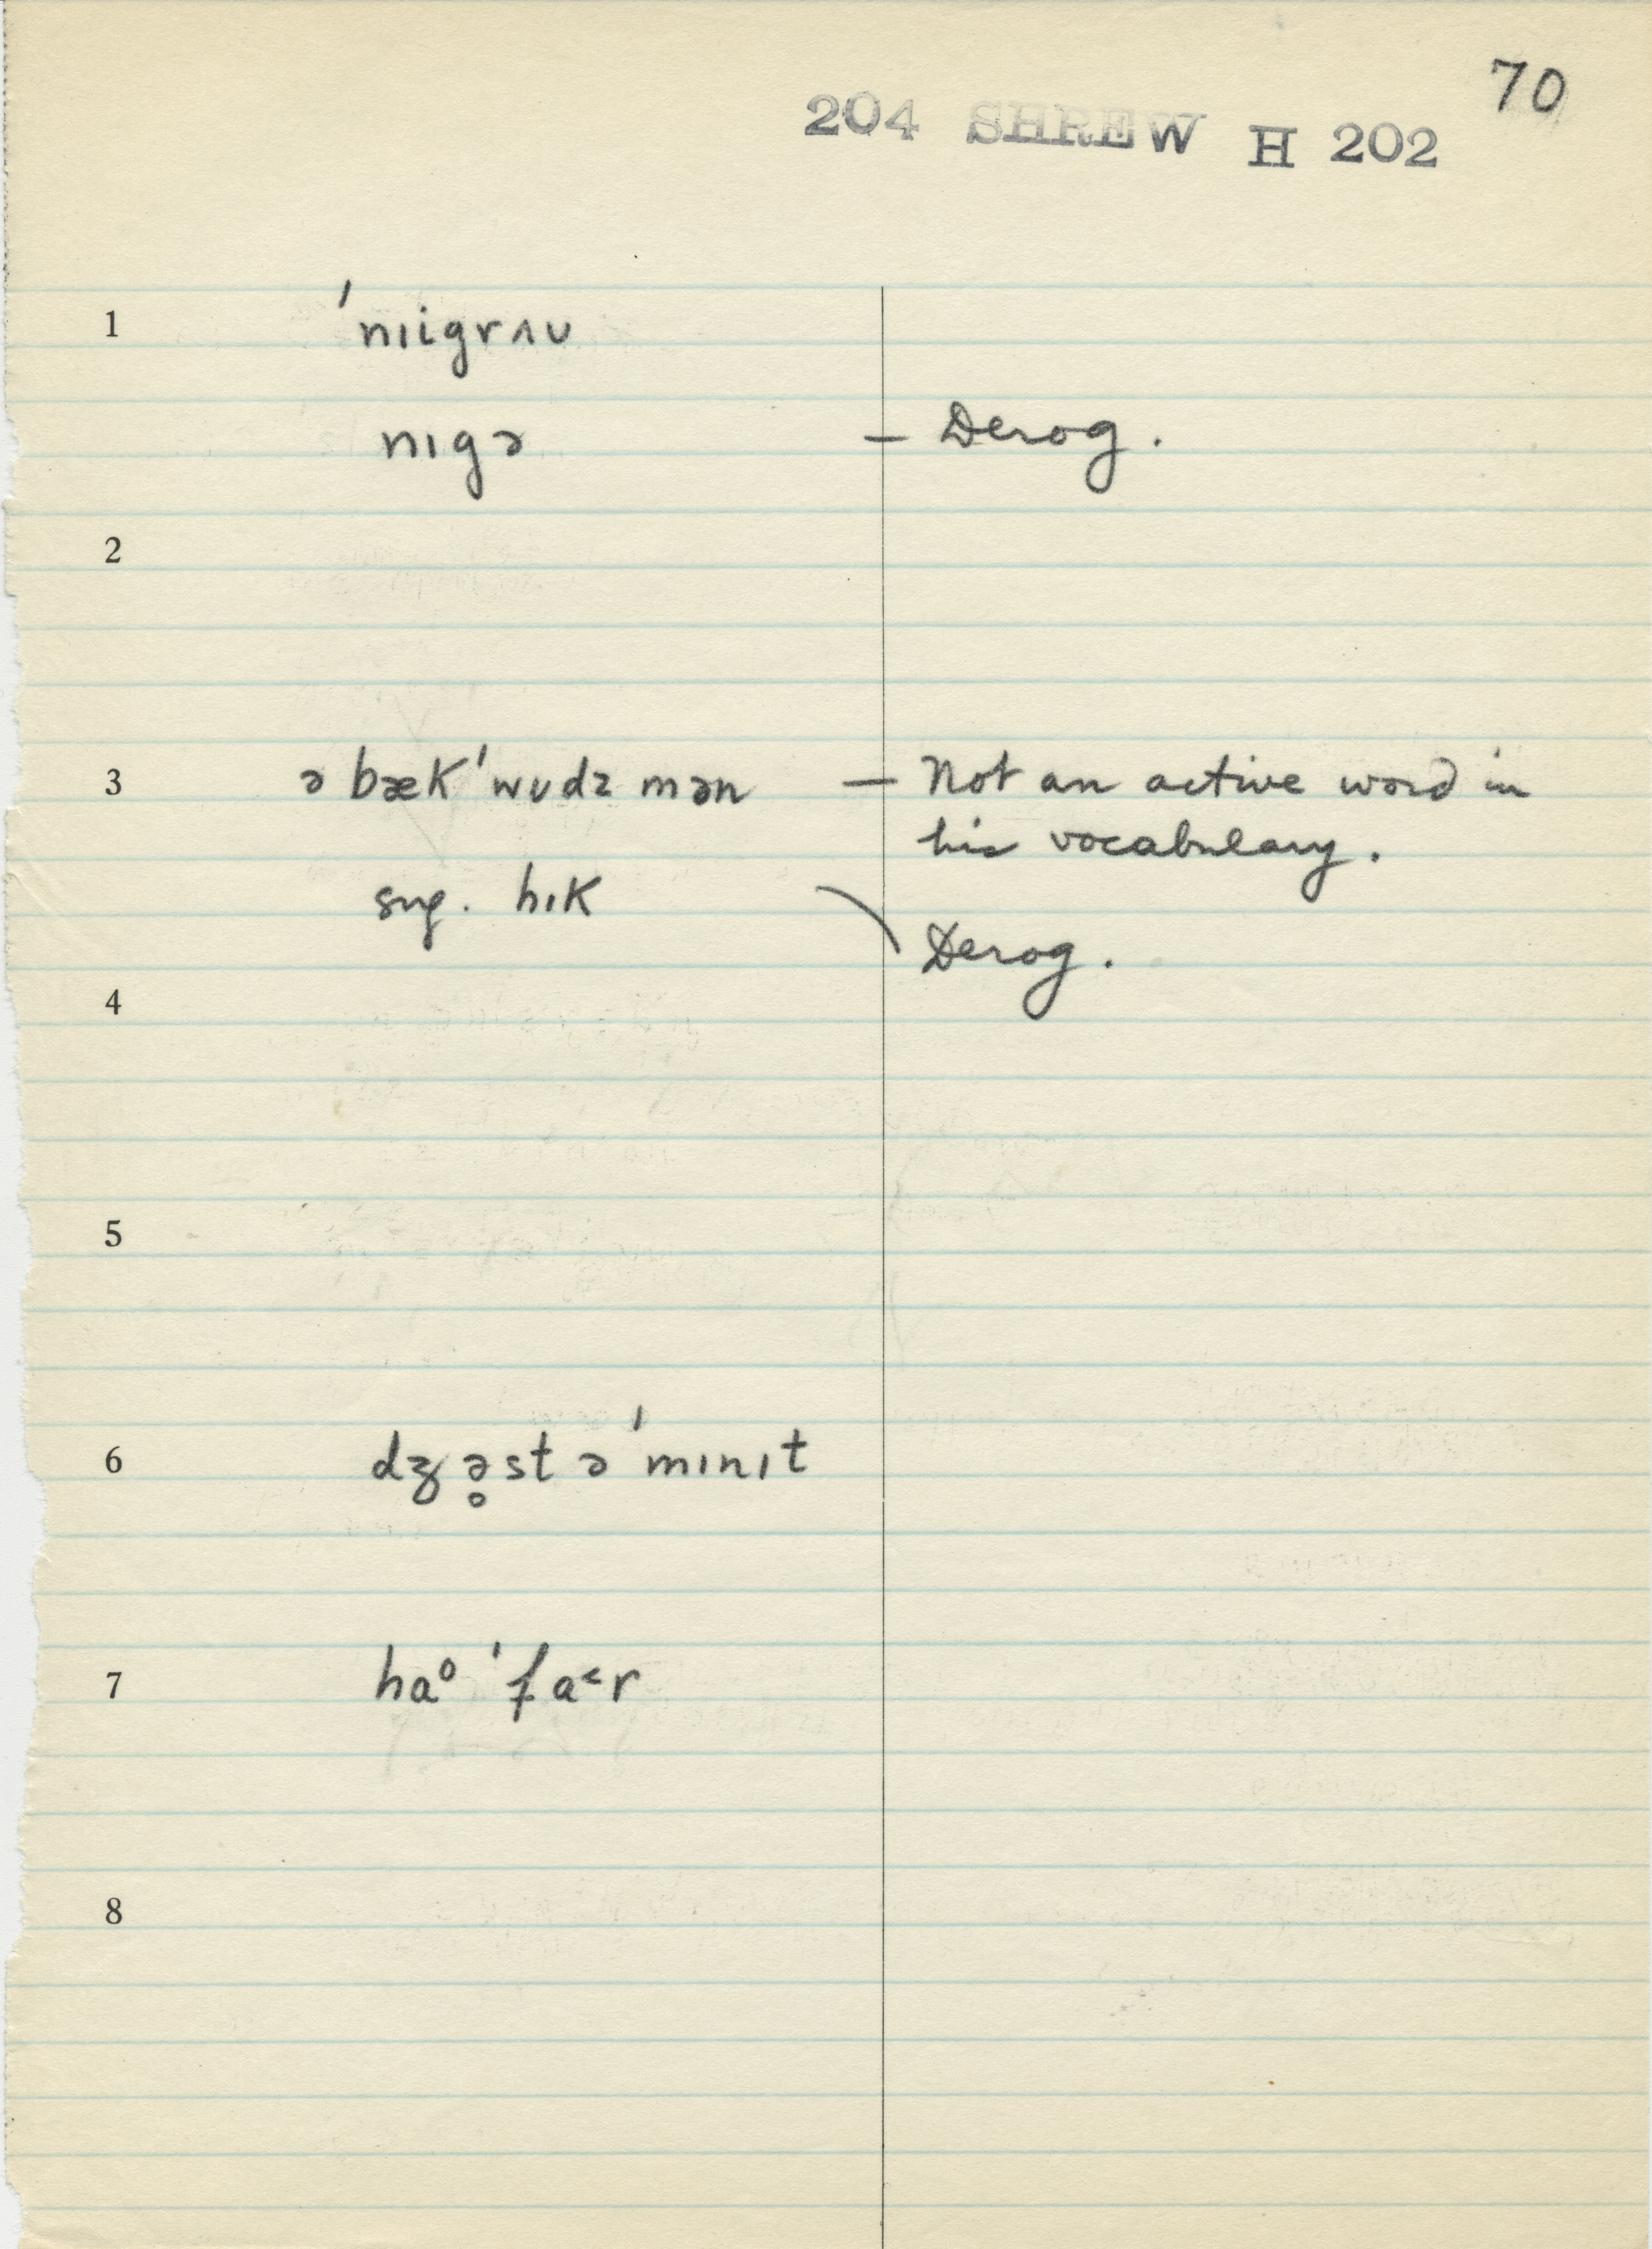 70
204 SHREW H 202
1 ˈnɪigrʌʊ
nɪgə — Derog.
2
3 ə bæk ˈwʊdz mən — Not an active word in
his vocabulary.
sug. hɪk \ Derog.
4
5
6 dʒə̥st ə ˈmɪnɪt
7 haᵒ ˈfa˂r
8